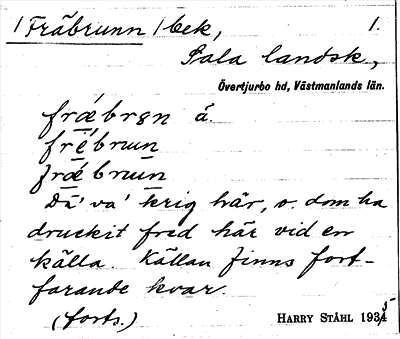 /Fräbrunn/bek, 1.
Sala landsk,
Övertjurbo hd, Västmanlands län.
frǽbrøn å
frébrun
frǽbrun
Då' va' krig här, o. dom ha
druckit fred här vid en
källa. Källan finns fort-
farande kvar.
(forts.)
HARRY STÅHL 1935